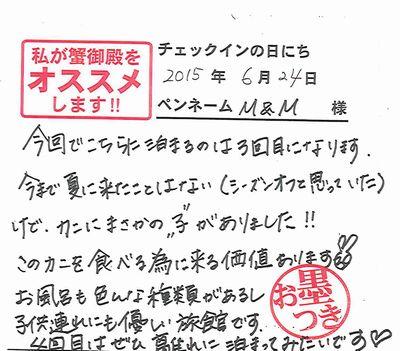 私が蟹御殿を
オススメ
します!!
チェックインの日にち
2015 年 6月 24日
ペンネーム M&M 様
今回でこちらに泊まるのは3回目になります.
今まで夏に来たことはない(シーズンオフと思っていた)
けど、カニにまさかの"子"がありました!!
このカニを食べる為に来る価値あります
お風呂も色んな種類があるし
子供連れにも優しい旅館です.
4回目はぜひ に泊まってみたいです♡
お墨つき